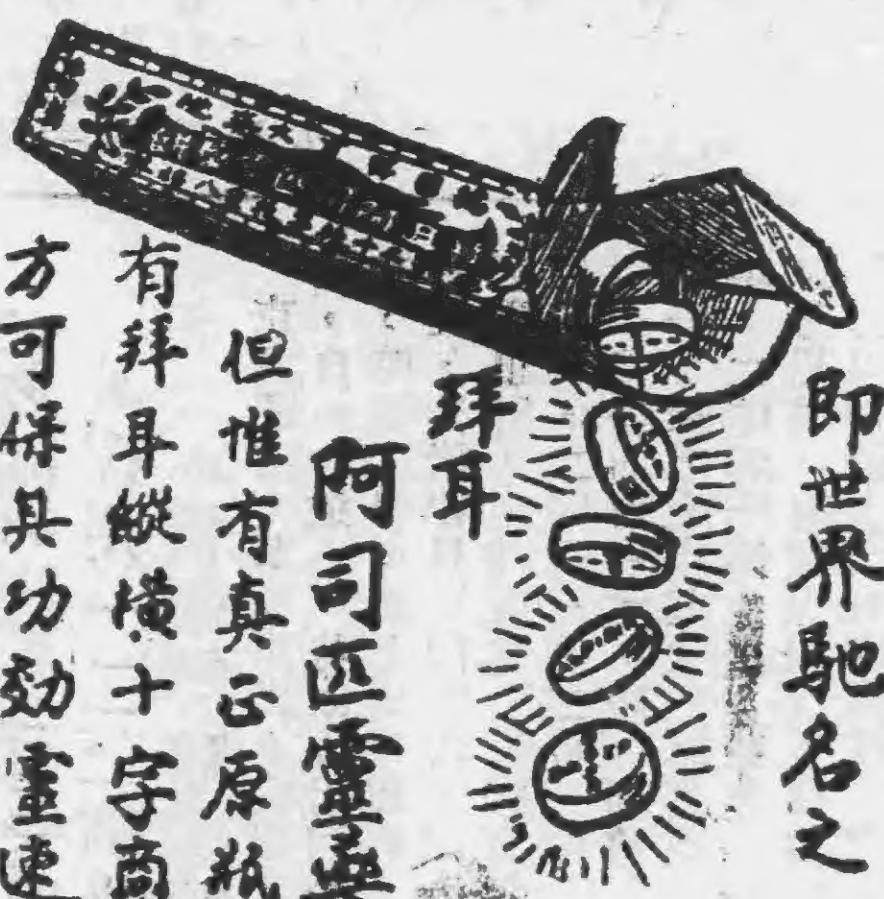 即世界馳名之
拜耳
阿司匹靈
但惟有真正原瓶
有拜耳縱橫十字商
方可保其功効靈速